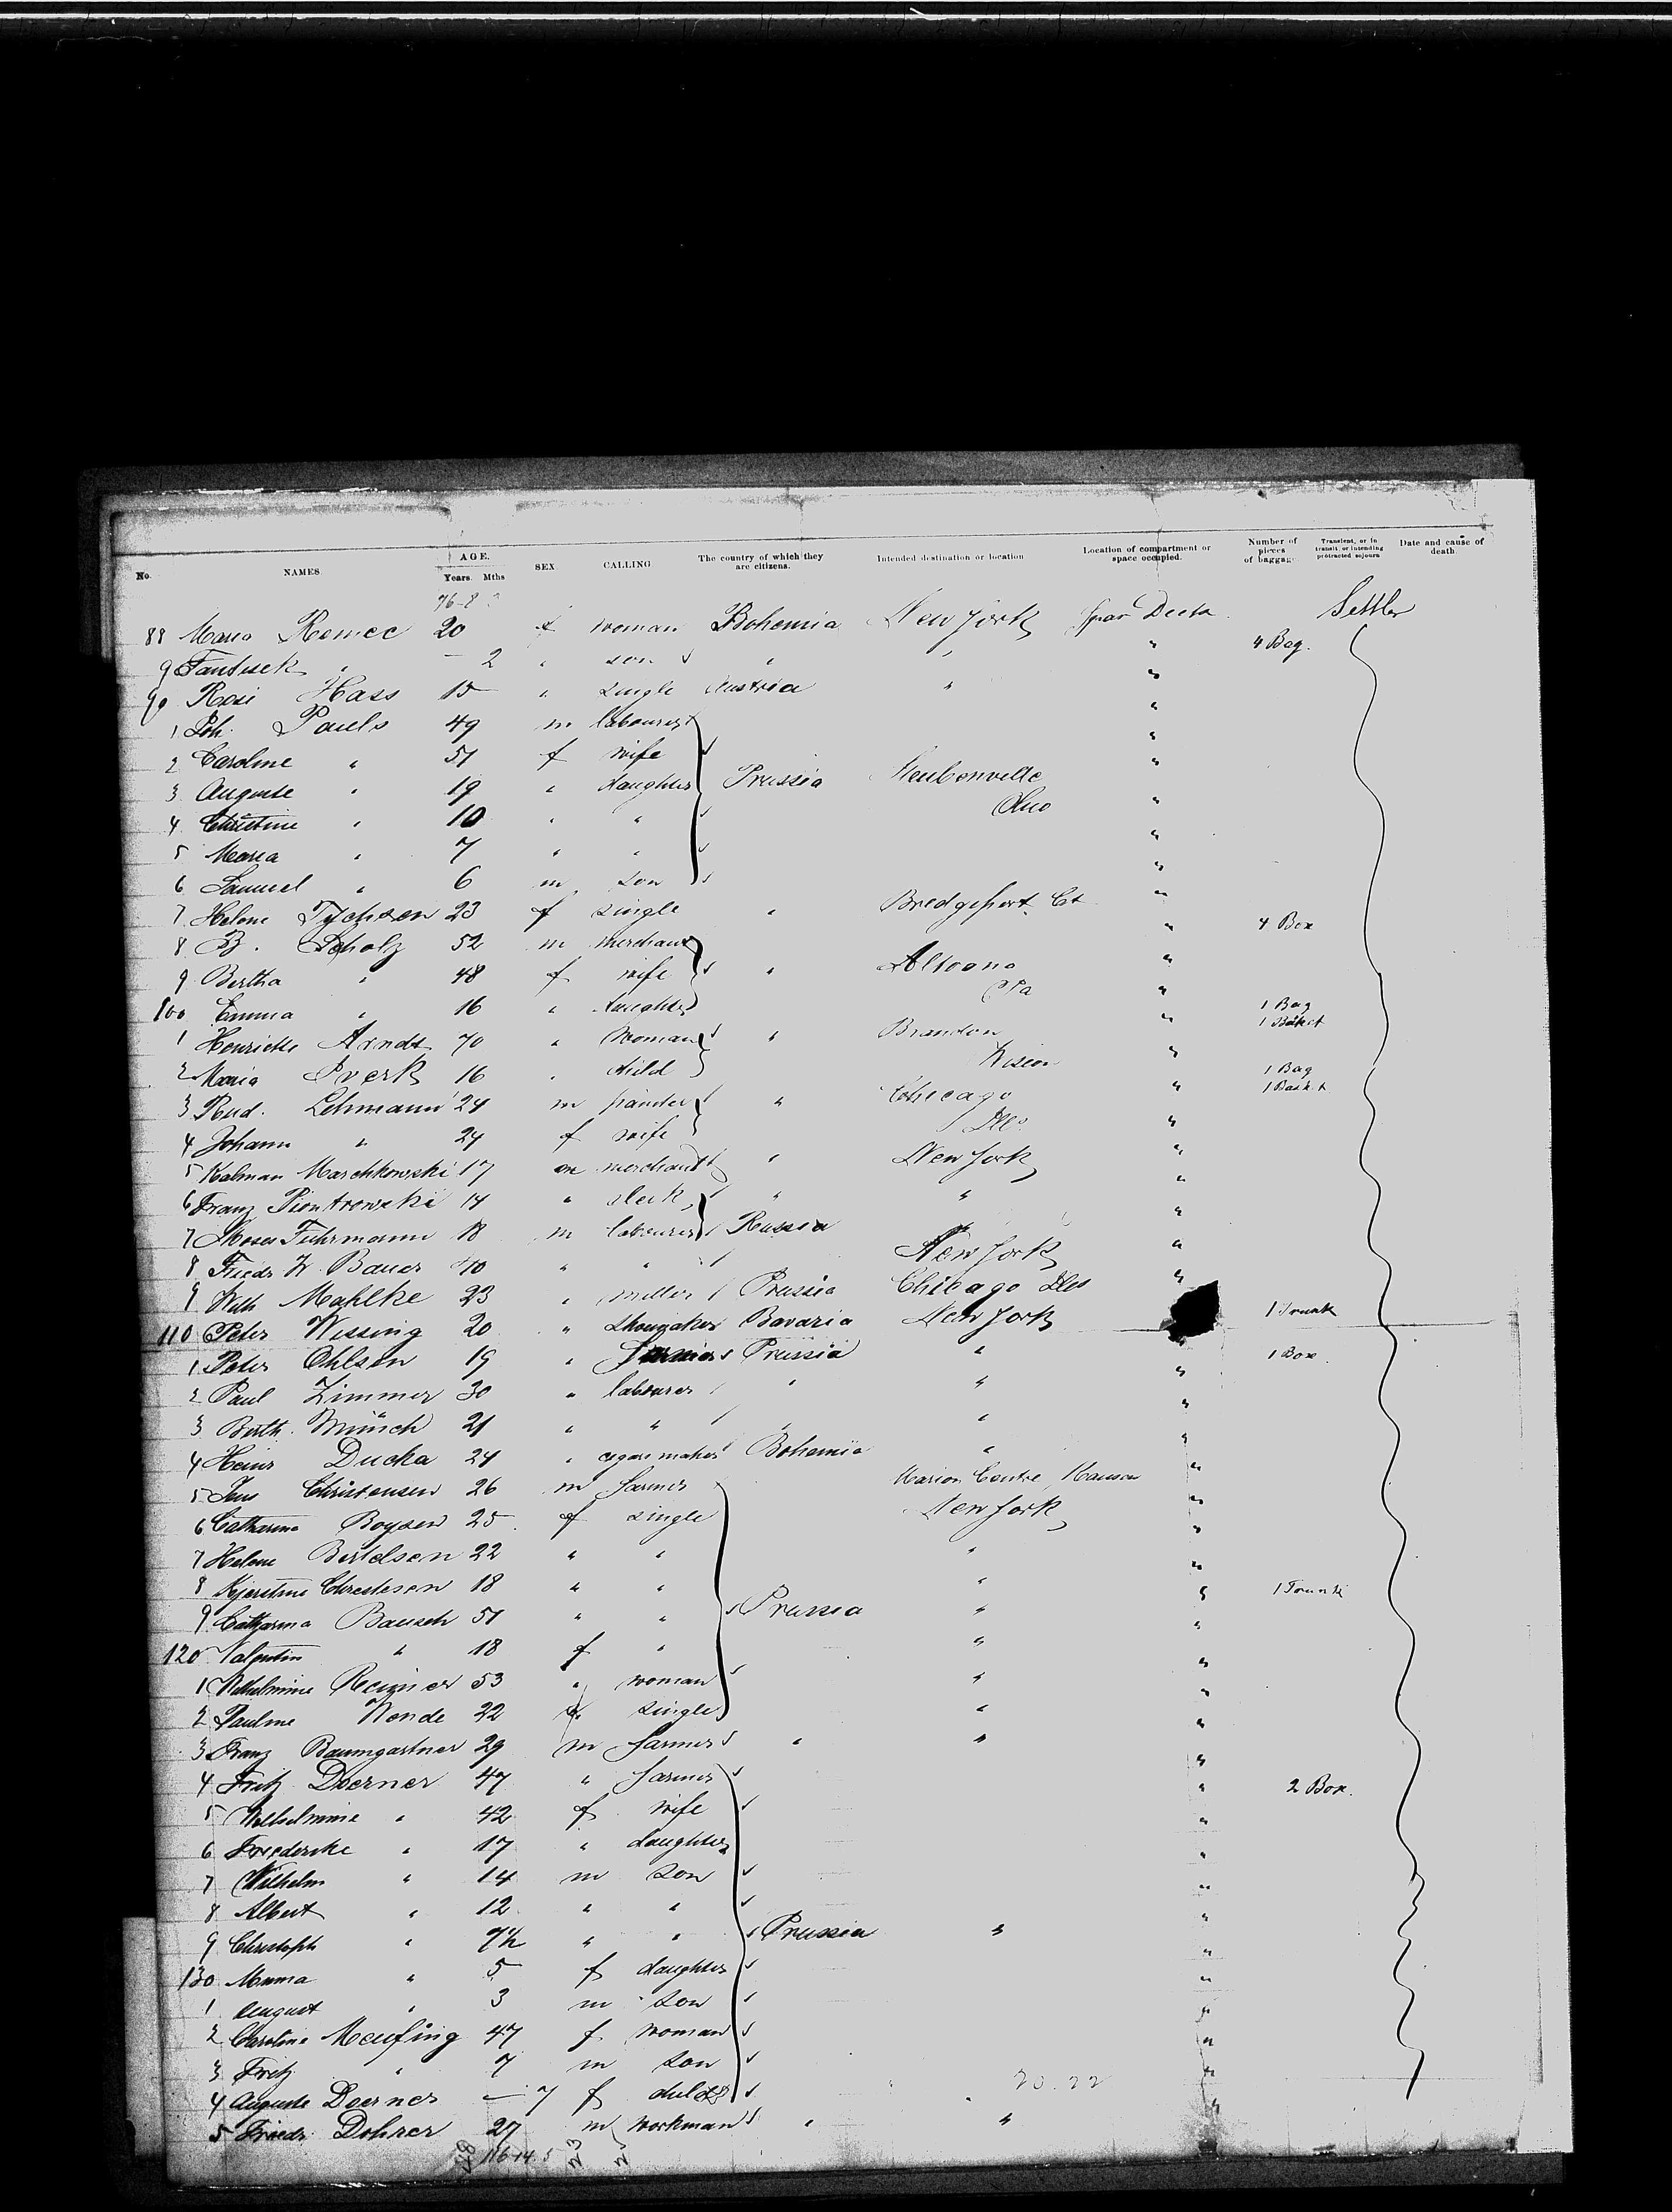 No. NAMES AGE. Years. Mths SEX CALLING The country of which they are citizens. Intended destination or location Location of compartment or space occupied. Number of pieces of baggage Transient, or in transit, or intending protracted sojourn Date and cause of death
76-8
88 Maria Remec 20 f woman Bohemia New York Spar Deck Settler
9 Fantisek " — 2 " son " " " 4 Bag.
90 Rosi Hass 15 " single Austria " "
1 Joh. Pauls 49 m labourer "
2 Caroline " 51 f wife "
3 Auguste " 19 " daughter Prussia Steubenville "
4 Christine " 10 " " Ohio "
5 Maria " 7 " " "
6 Samuel " 6 m son "
7 Helene Tychsen 23 f single " Bridgeport Ct "
8 B. Scholz 52 m merchant " 4 Box
9 Bertha " 48 f wife " Altoona "
100 Emma " 16 " daughter Pa " 1 Bag
1 Henriette Arndt 70 " woman " Brandon " 1 Basket
2 Maria 16 " child Wiscon " 1 Bag
3 Rud. Lehmann 24 m painter " Chicago " 1 Bask.t
4 Johann " 24 f wife Ills "
5 Kalman Marchkowski 17 m merchant " New York "
6 Franz Piontrowski 14 " clerk " " "
7 Moses Fuhrmann 18 m labourer Russia " "
8 Friedr W. Bauer 40 " " New York "
9 Wilh Mahlke 23 " miller Prussia Chicago Ills "
110 Peter Wissing 20 " Shoemaker Bavaria New York 1 Trunk
1 Peter Ohlsen 19 " Farmer Prussia " 1 Box.
2 Paul Zimmer 30 " labourer " " "
3 Berth. Münch 21 " " " " "
4 Heinr Ducka 24 " cigarmaker Bohemia " "
5 Jens Christensen 26 m farmer Marion Centre, Kansas "
6 Catharina Boysen 25 f single New York "
7 Helene Bertelsen 22 " " " "
8 Kjerstine Christesen 18 " " " " 1 Trunk
9 Catharina Bausch 51 " " Prussia " "
120 Valentin " 18 f " " "
1 Wilhelmine Reimer 53 " woman " "
2 Pauline Wende 22 f. single " "
3 Franz Baumgartner 29 m farmer " " "
4 Fritz Doerner 47 " farmer "
5 Wilhelmine " 42 f wife " 2 Box.
6 Friederike " 17 " daughter "
7 Wilhelm " 14 m son "
8 Albert " 12 " " "
9 Christoph " 7½ " " Prussia " "
130 Minna " 5 f daughter "
1 August " 3 m son "
2 Caroline Meufing 47 f woman "
3 Fritz " 7 m son "
4 Auguste Doerner — 7 f child 20.22 "
5 Friedr. Dohrer 27 m workman " " "
116-14.5 23